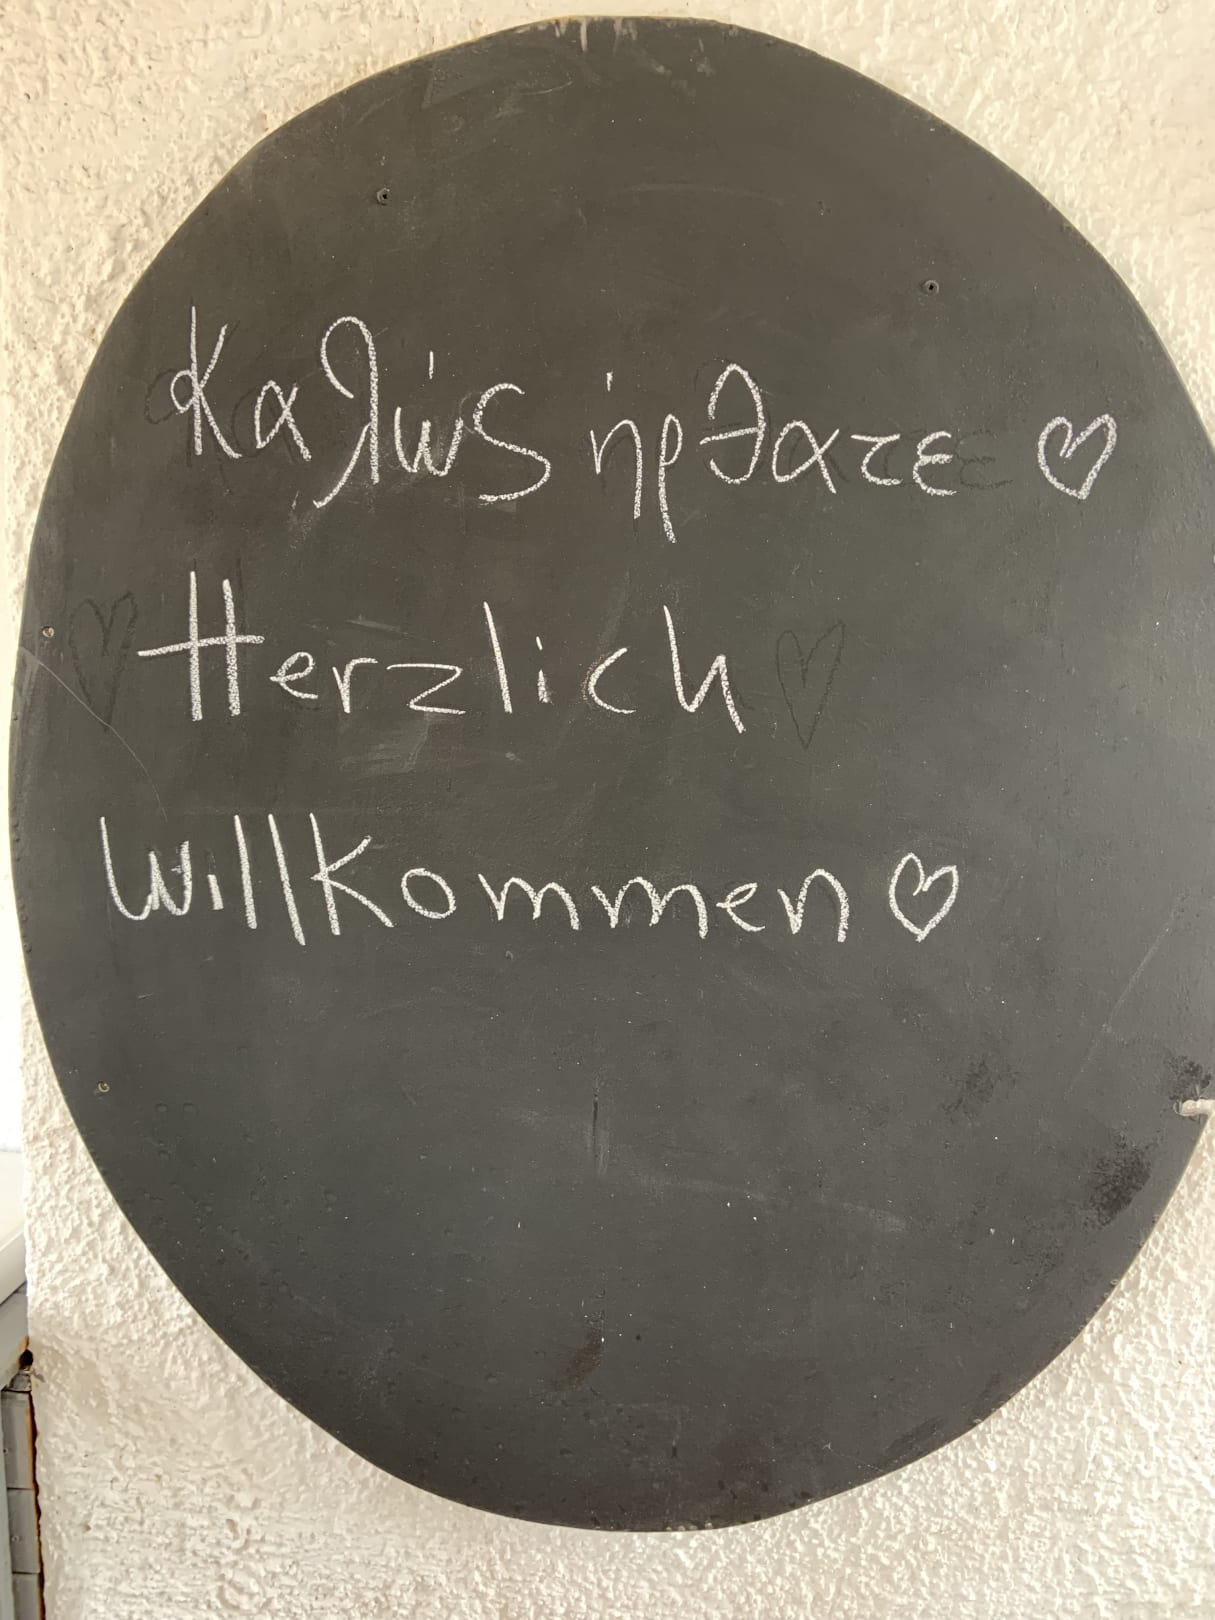 Καλώς ήρθατε ♡
Herzlich
Willkommen ♡